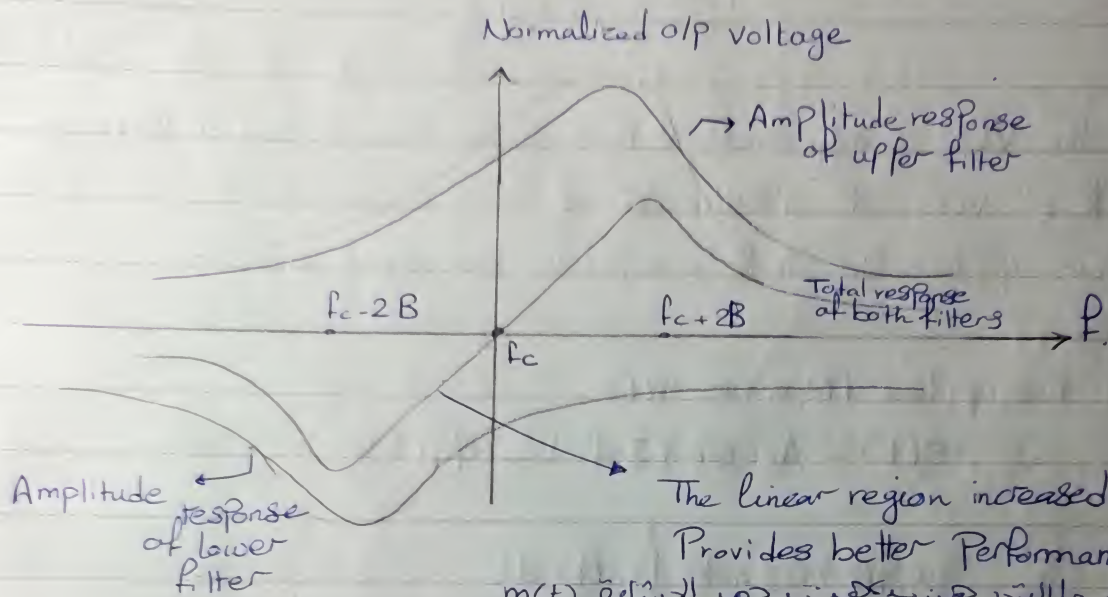 Normalized o/p voltage
Amplitude response
of upper filter
Total response
of both filters
fc - 2B
fc + 2B
f.
fc
Amplitude
response
of lower
filter
The linear region increased
Provides better Performan
m(t)